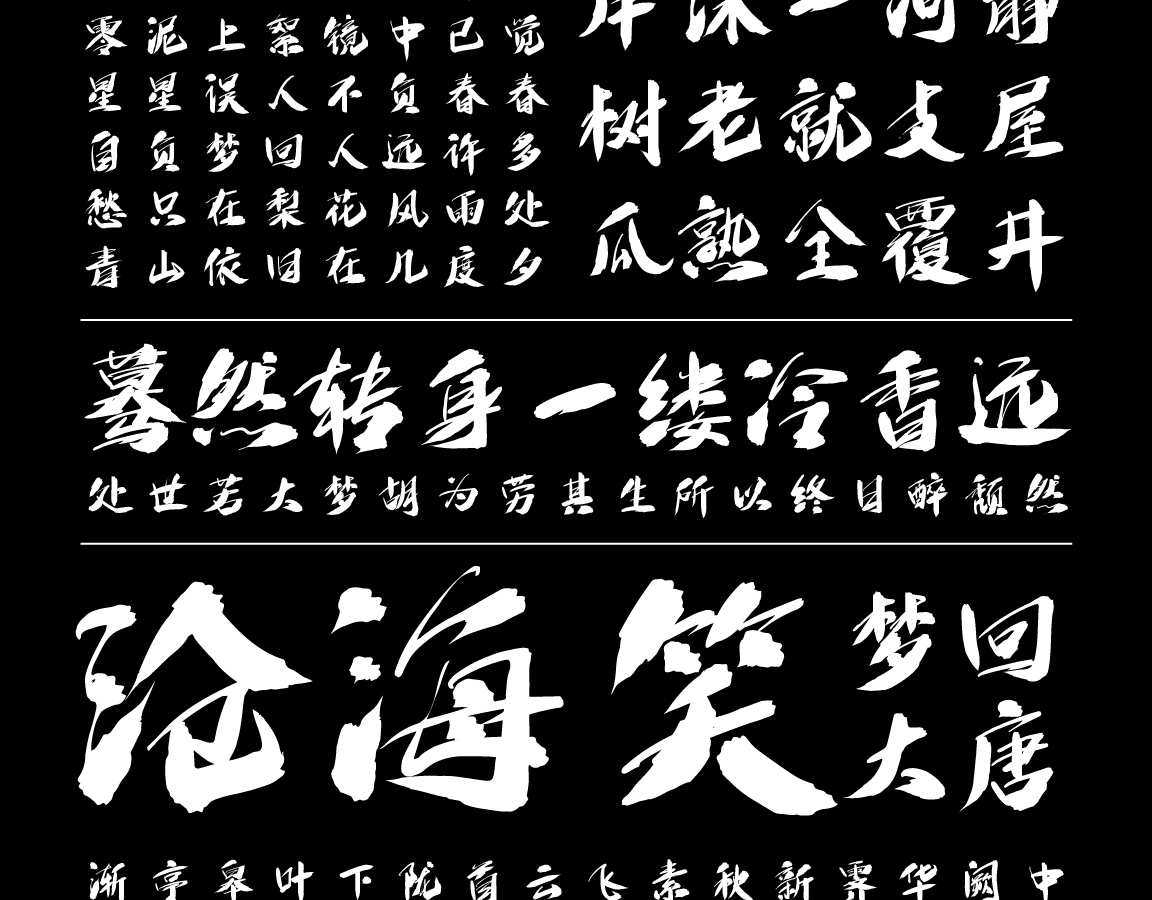 零泥上絮镜中已觉
星星误人不负春春
自负梦回人远许多
愁只在梨花风雨处
青山依旧在几度夕
岸深一河静
树老就支屋
瓜熟全覆井
蓦然转身一缕冷香远
处世若大梦胡为劳其生所以终日醉颓然
沧海笑
梦回
大唐
渐亭皋叶下陇首云飞素秋新霁华阙中